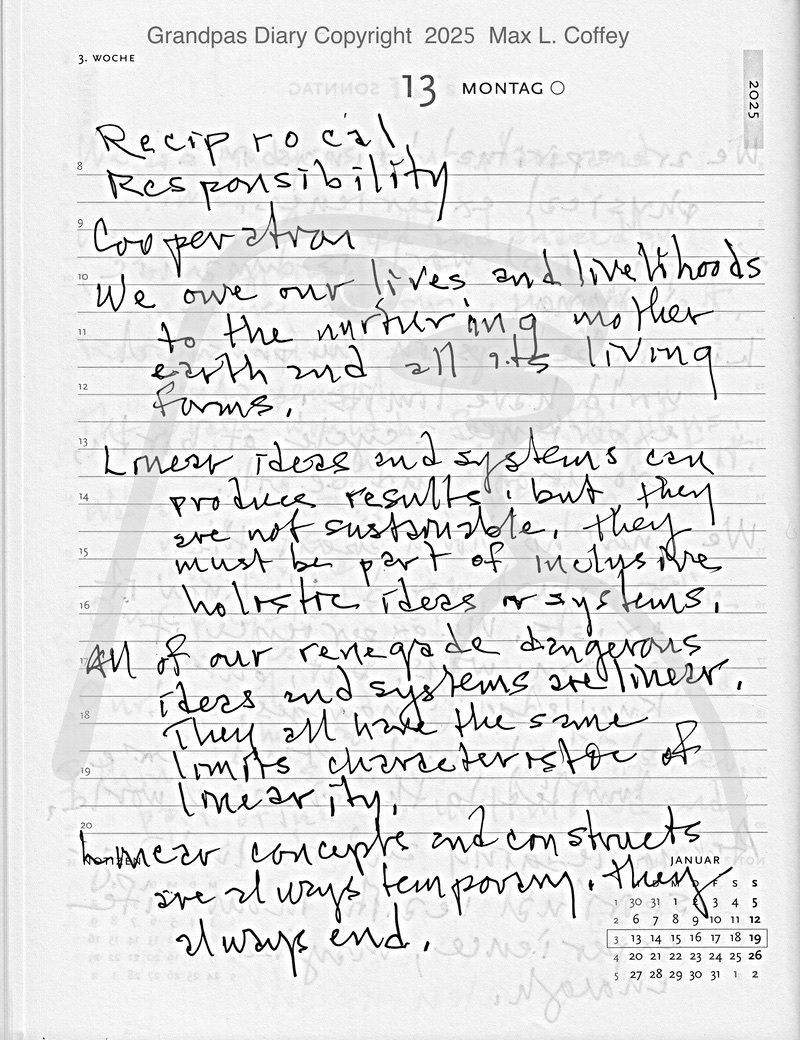 Grandpas Diary Copyright 2025 Max L. Coffey
3. WOCHE
13 MONTAG
2025
Reciprocal
8
Responsibility
9
Cooperation
10
We owe our lives and livelihoods
11
to the nurturing mother
earth and all its living
12
forms.
13
Linear ideas and systems can
14
produce results, but they
are not sustainable. They
15
must be part of inclusive
16
holistic ideas or systems.
17
All of our renegade dangerous
ideas and systems are linear.
18
They all have the same
19
limits characteristic of
linearity.
20
Linear concepts and constructs
NOTIZEN
JANUAR
are always temporary. They
always end.
M D M D F S S
1 30 31 1 2 3 4 5
2 6 7 8 9 10 11 12
3 13 14 15 16 17 18 19
4 20 21 22 23 24 25 26
5 27 28 29 30 31 1 2